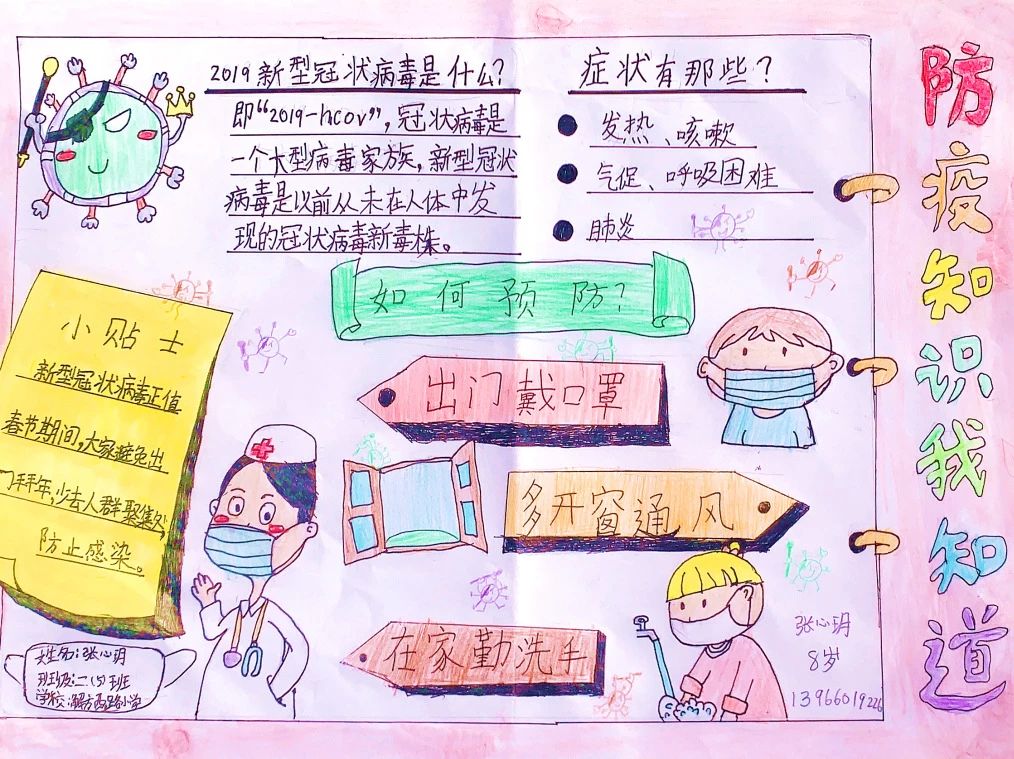 2019新型冠状病毒是什么?
即“2019-hcov”,冠状病毒是
一个大型病毒家族,新型冠状
病毒是以前从未在人体中发
现的冠状病毒新毒株。
症状有那些?
发热、咳嗽
气促、呼吸困难
肺炎
防疫知识我知道
如何预防?
小贴士
新型冠状病毒正值
春节期间,大家避免出
门拜年,少去人群聚集处,
防止感染。
出门戴口罩
多开窗通风
在家勤洗手
姓名:张心玥
班级:二(5)班
学校:解放西路小学
张心玥
8岁
13966019226